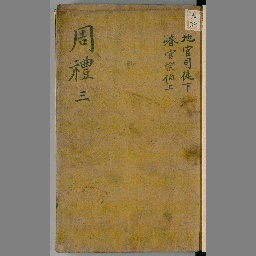 周禮
三
地官司徒下
春官宗伯上